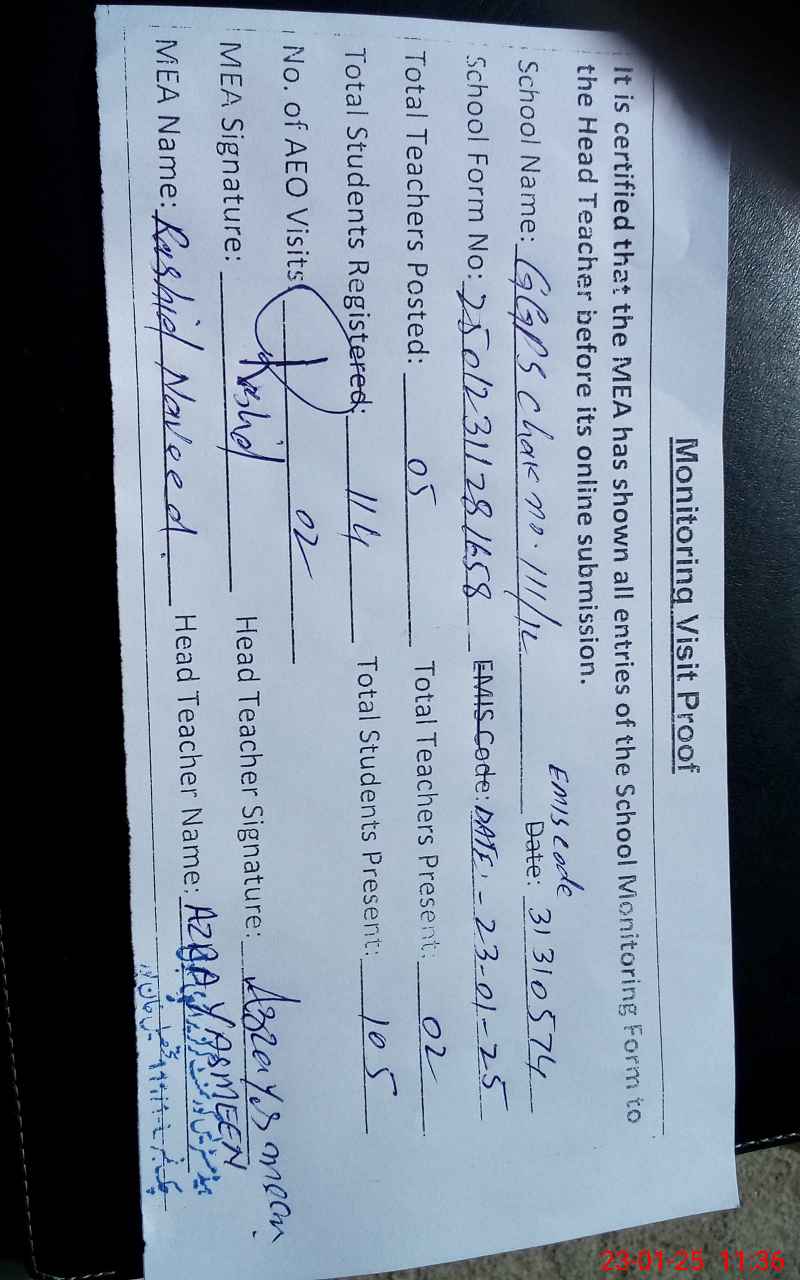 Monitoring Visit Proof
It is certified that the MEA has shown all entries of the School Monitoring Form to
the Head Teacher before its online submission.
EMIS code
School Name: GGPS Chak no. 111/1L Date: 31310574
School Form No: 25012311281658 EMIS Code: DATE:- 23-01-25
Total Teachers Posted: 05 Total Teachers Present: 02
Total Students Registered: 114 Total Students Present: 105
No. of AEO Visits 02
MEA Signature: Rashid Head Teacher Signature: Azra Yasmeen
MEA Name: Rashid Naveed. Head Teacher Name: AZRA YASMEEN
23-01-25 11:36